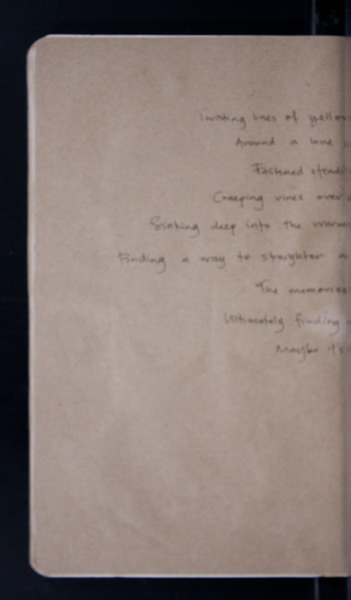 Inviting lines of yellow
Around a lone
Fastened steadi
Creeping vines over
Sinking deep into the warm
Finding a way to straighten a
The memories
Ultimately finding
Maybe it's